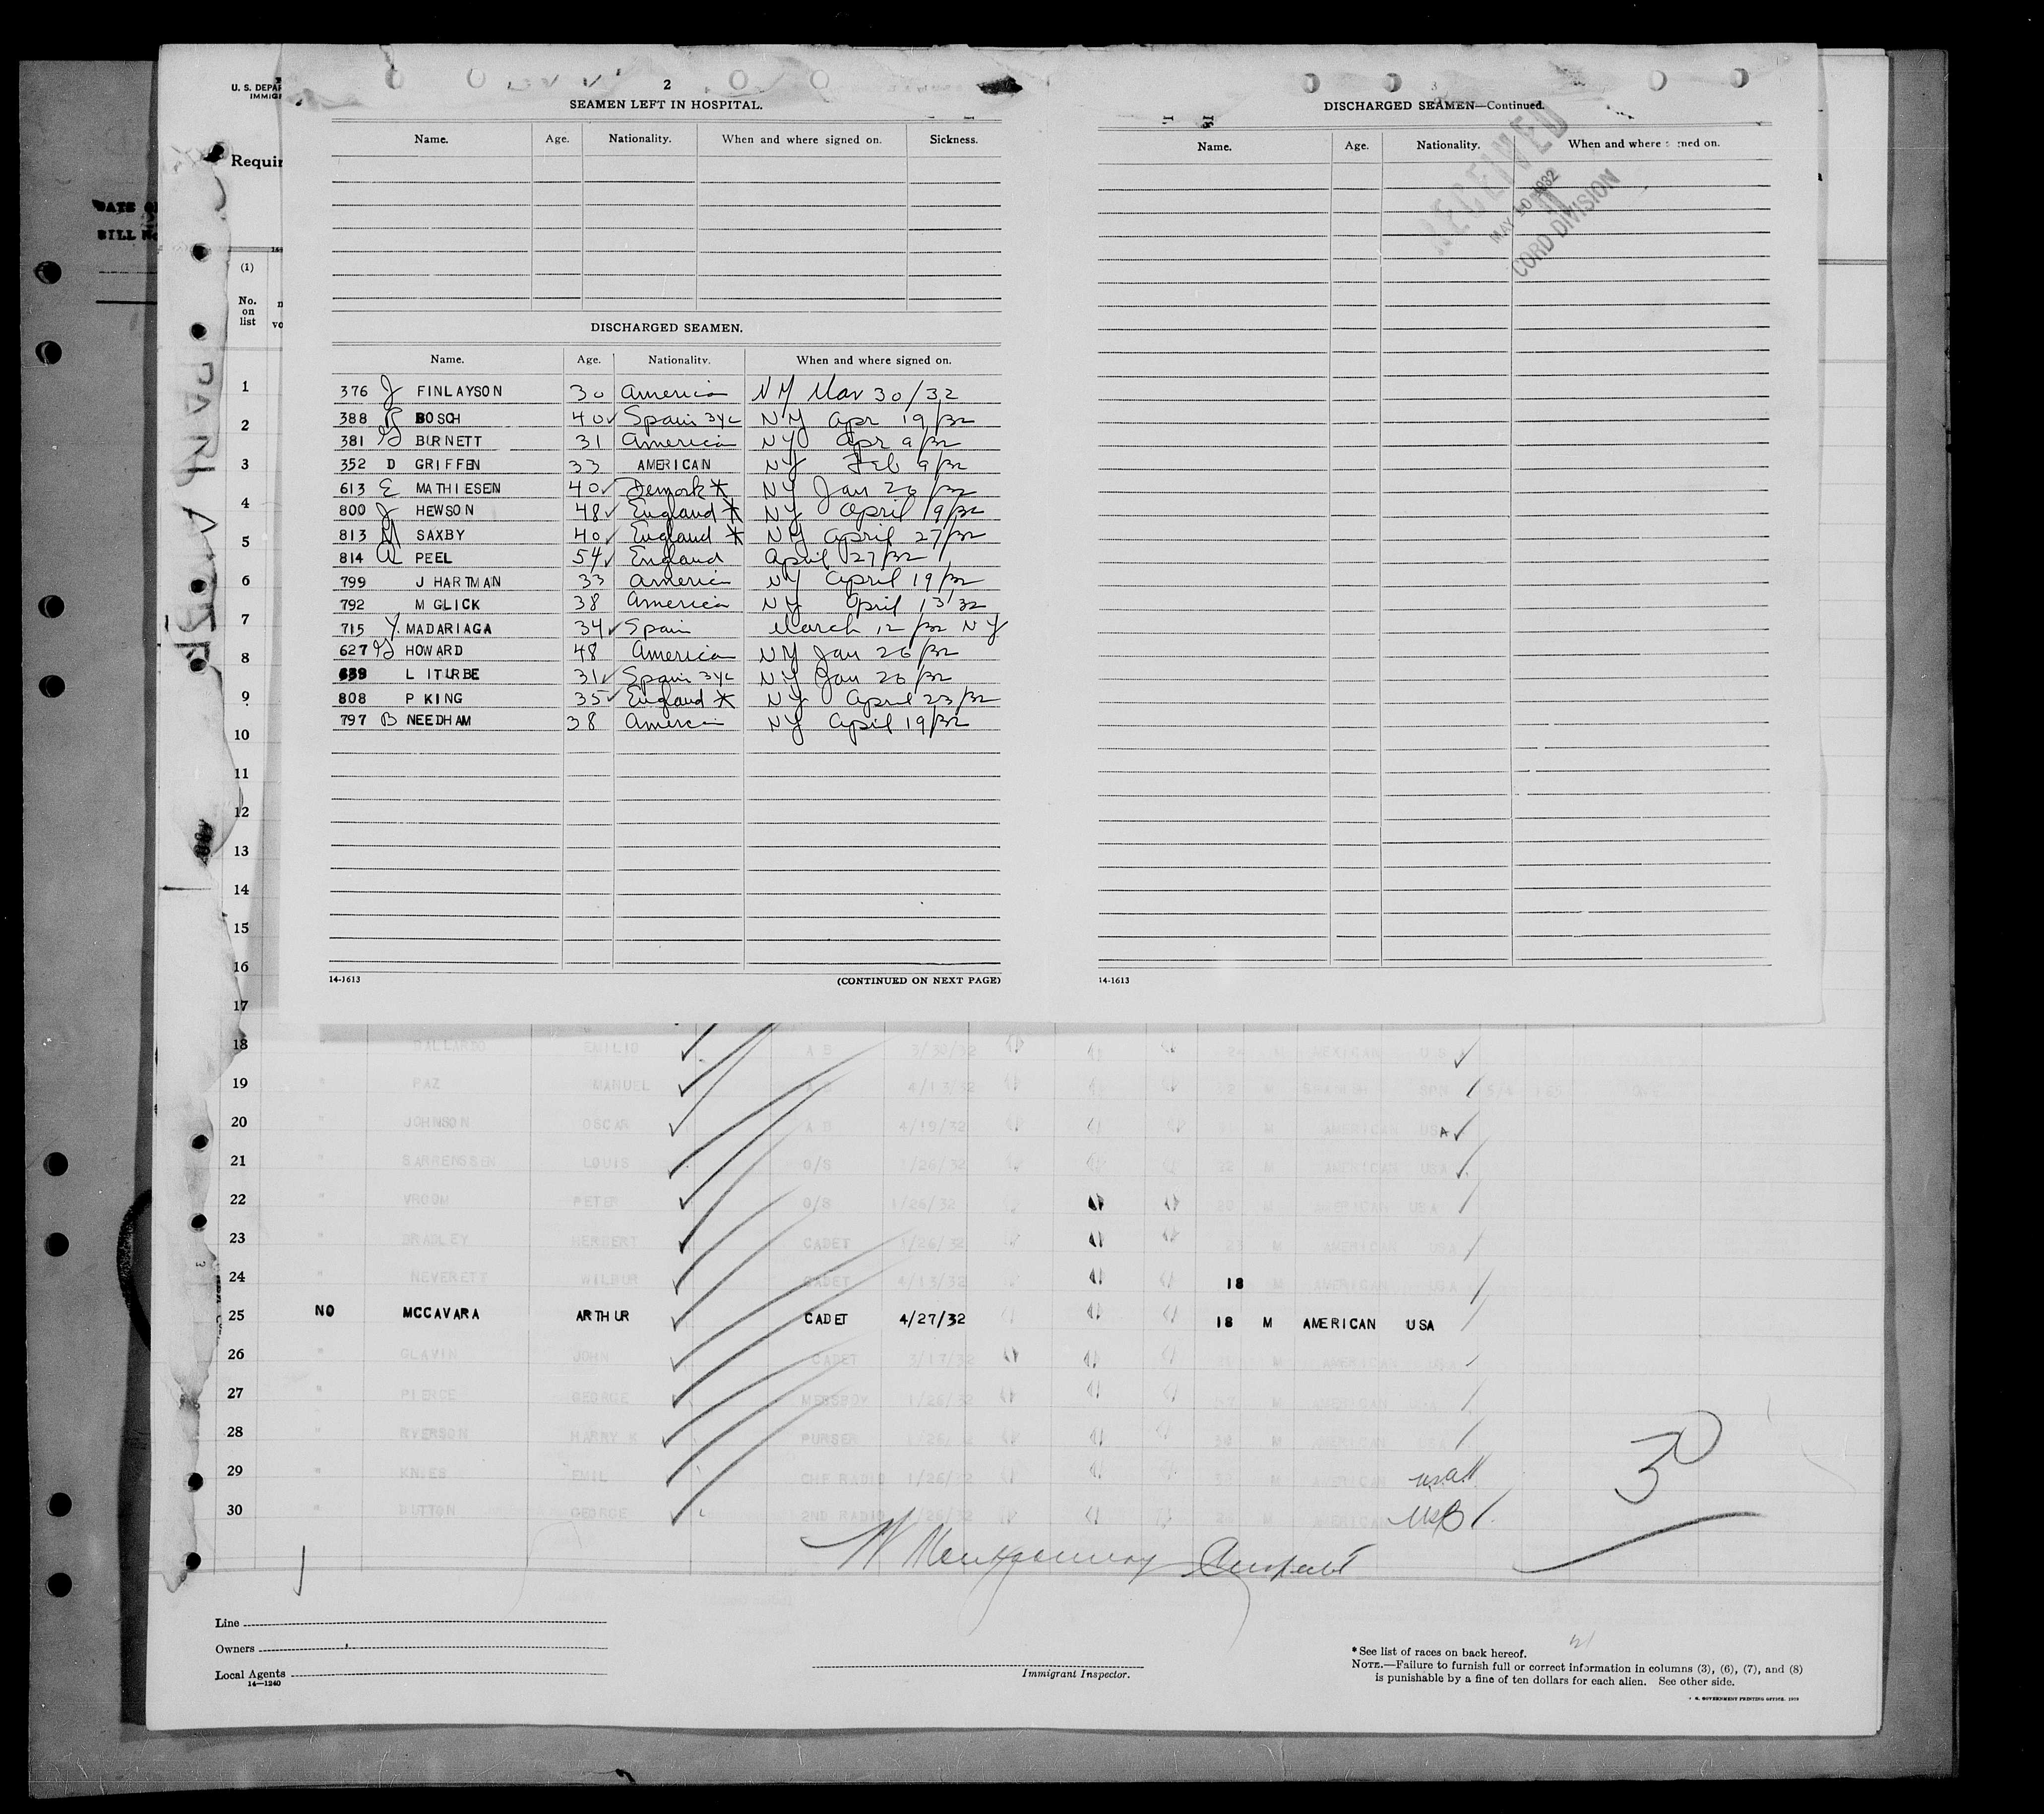 U. S. DEPAR
IMMIG
Requir
DATE O
BILL No
(1)
No.
on
list
2
SEAMEN LEFT IN HOSPITAL.
Name. Age. Nationality. When and where signed on. Sickness.
DISCHARGED SEAMEN.
Name. Age. Nationality. When and where signed on.
376 J FINLAYSON 30 America NY Mar 30/32
388 BOSCH 40✓ Spain 3yc NY Apr 19/32
381 G BURNETT 31 America NY Apr 9/32
352 D GRIFFEN 33 AMERICAN NY Feb 9/32
613 E MATHIESEN 40✓ Denmork * NY Jan 26/32
800 J HEWSON 48✓ England * NY April 19/32
813 M SAXBY 40✓ England * NY April 27/32
814 A PEEL 54✓ England April 27/32
799 J HARTMAN 33 America NY April 19/32
792 M GLICK 38 America NY April 13/32
715 Y. MADARIAGA 34✓ Spain March 12/32 NY
627 G HOWARD 48 America NY Jan 26/32
639 L ITURBE 31✓ Spain 3yc NY Jan 26/32
808 P KING 35✓ England * NY April 23/32
797 B NEEDHAM 38 America NY April 19/32
14-1613 (CONTINUED ON NEXT PAGE)
3
DISCHARGED SEAMEN—Continued.
Name. Age. Nationality. When and where signed on.
RECEIVED
MAY 10 1932
CORD DIVISION
14-1613
1
2
3
4
5
6
7
8
9
10
11
12
13
14
15
16
17
18 " BALLARDO EMILIO A B 3/30/32 M MEXICAN U S ✓
19 " PAZ MANUEL 4/13/32 M SPANISH SPN 5/4 165
20 " JOHNSON OSCAR A B 4/19/32 M AMERICAN USA ✓
21 " BARRENSSEN LOUIS O/S /26/32 22 M AMERICAN USA ✓
22 " VROOM PETER O/S 1/26/32 20 M AMERICAN USA
23 " BRADLEY HERBERT CADET 1/26/32 M AMERICAN USA
24 " NEVERETT WILBUR CADET 4/13/32 18 M AMERICAN USA
25 NO MCCAVARA ARTHUR CADET 4/27/32 18 M AMERICAN USA
26 " GLAVIN JOHN CADET 3/17/32 M AMERICAN
27 " PIERCE GEORGE MESSBOY 1/26/32 M AMERICAN
28 " RYERSON HARRY K PURSER M AMERICAN
29 " KNIES EMIL CHF RADIO 1/26/32 M AMERICAN
30 " DUTTON GEORGE 2ND RADIO M AMERICAN
30
W Montgomery
Line
Owners
Local Agents
14—1240
Immigrant Inspector.
* See list of races on back hereof.
NOTE.—Failure to furnish full or correct information in columns (3), (6), (7), and (8)
is punishable by a fine of ten dollars for each alien. See other side.
GOVERNMENT PRINTING OFFICE